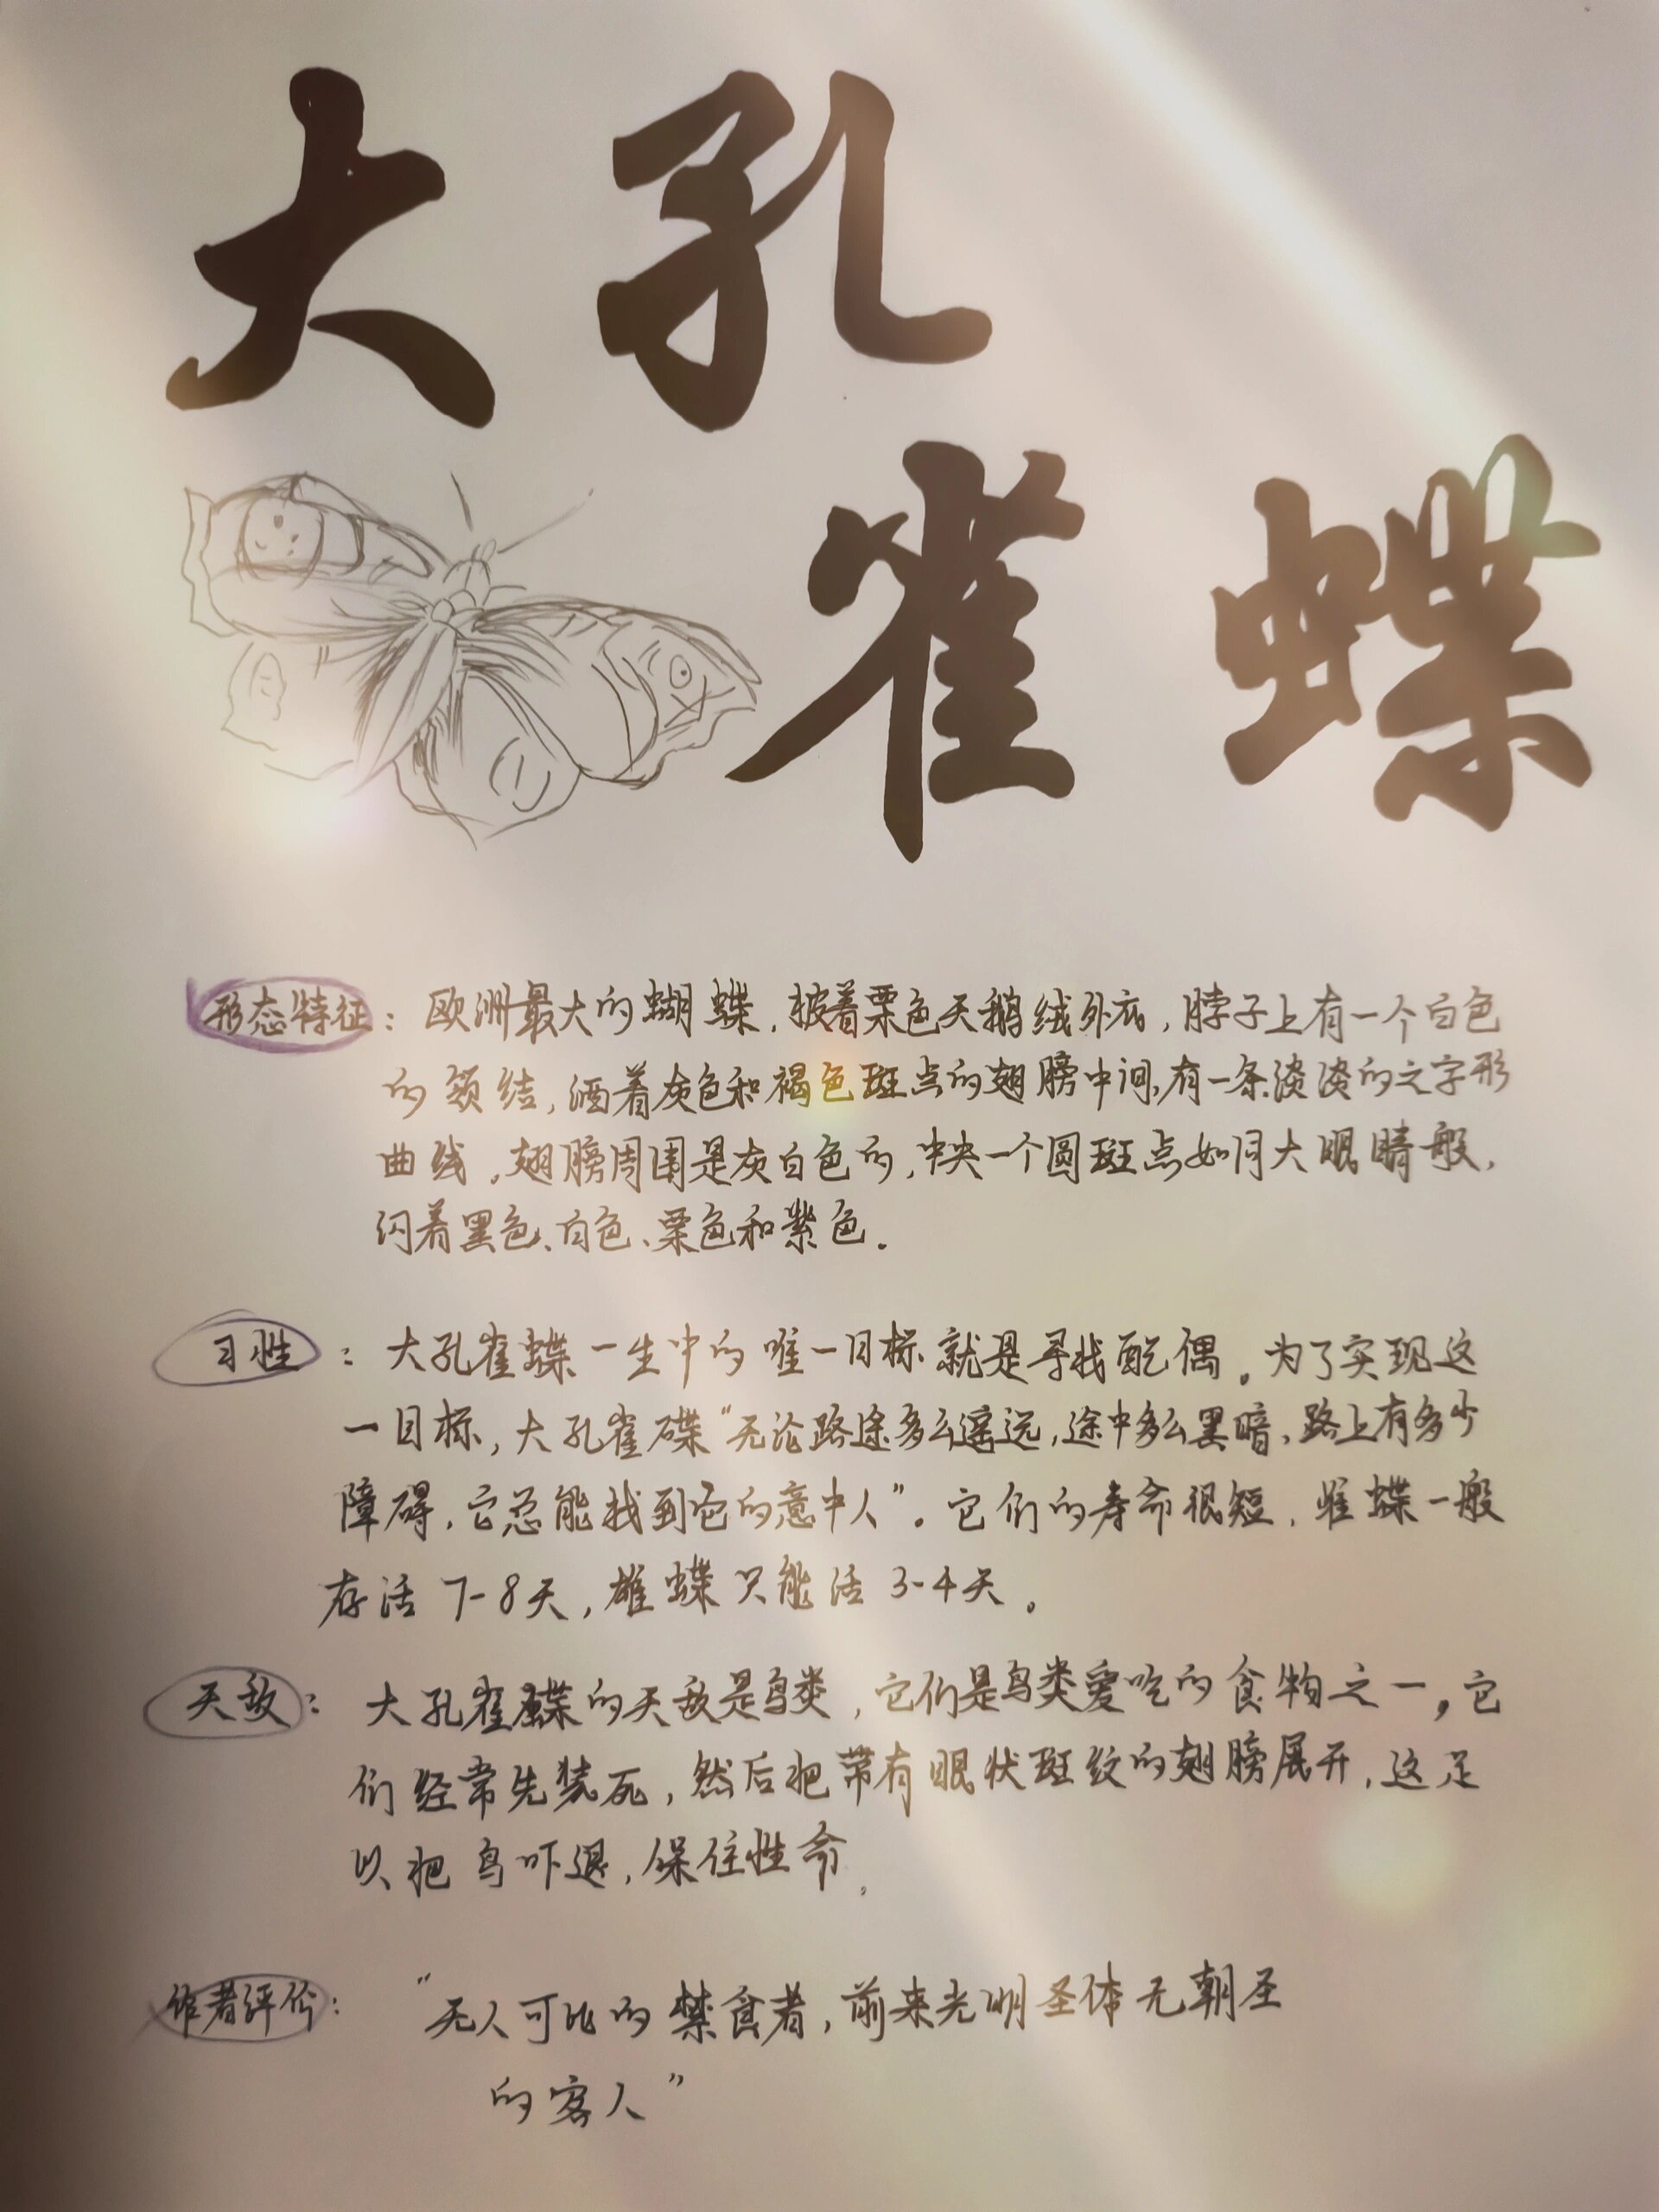 大孔
雀蝶
形态特征：欧洲最大的蝴蝶，披着栗色天鹅绒外衣，脖子上有一个白色
的领结，洒着灰色和褐色斑点的翅膀中间，有一条淡淡的之字形
曲线。翅膀周围是灰白色的，中央一个圆斑点如同大眼睛般，
闪着黑色、白色、栗色和紫色。
习性：大孔雀蝶一生中的唯一目标就是寻找配偶。为了实现这
一目标，大孔雀碟“无论路途多么遥远，途中多么黑暗，路上有多少
障碍，它总能找到它的意中人”。它们的寿命很短，雌蝶一般
存活7-8天，雄蝶只能活3-4天。
天敌：大孔雀蝶的天敌是鸟类，它们是鸟类爱吃的食物之一。它
们经常先装死，然后把带有眼状斑纹的翅膀展开，这足
以把鸟吓退，保住性命。
作者评价：“无人可比的禁食者，前来光明圣体无朝圣
的客人”